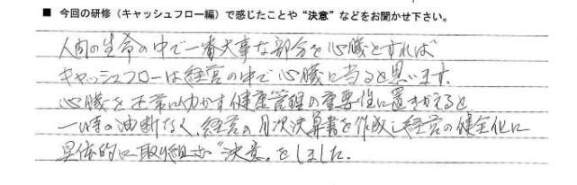 ■ 今回の研修（キャッシュフロー編）で感じたことや"決意"などをお聞かせ下さい。
人間の生命の中で一番大事な部分を心臓とすれば
キャッシュフローは経営の中で心臓に当ると思います。
心臓を正常にゆかす健康管理の重要性に置きかえると
一時の油断なく、経営の月次決算書を作成し経営の健全化に
具体的に取り組む"決意"をしました。